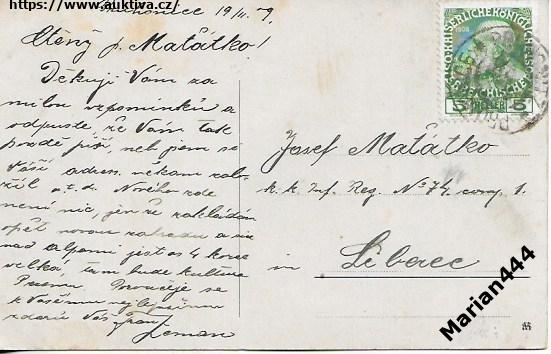 https://www.auktiva.cz/
19/11. 9.
Ctěný p. Maťátko!
Děkuji Vám za
milou vzpomínku a
odpuste, že Vám tak
pozdě píši, neb jsem si
Vaší adres. někam zalo-
žil a.t.d. Nového zde
není nic, jen že zakládám
opět novou zahradu a sic
nad alpami jest as 4 korce
velká, tam bude kultura
Poroučeje se
k Vašemu nejlepšímu
zdaru Váš
Zeman
1908
KAISERLICHE KÖNIGLICHE
ÖSTERREICHISCHE POST
5 HELLER 5
Josef Maťátko
k. k. Inf. Reg. No 74. comp. 1.
in Liberec
Marian444